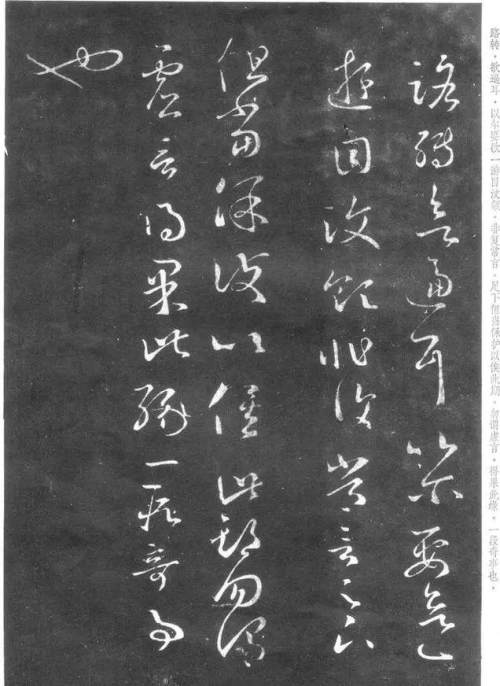 路转，欲逼耳，以尔要欲一游目汶领，非复常言，足下但当保护以俟此期，勿谓虚言，得果此缘，一段奇事也。
路轉欲逼耳以爾要欲一
遊目汶領非復常言足下
但當保護以俟此期勿謂
虛言得果此緣一段奇事
也